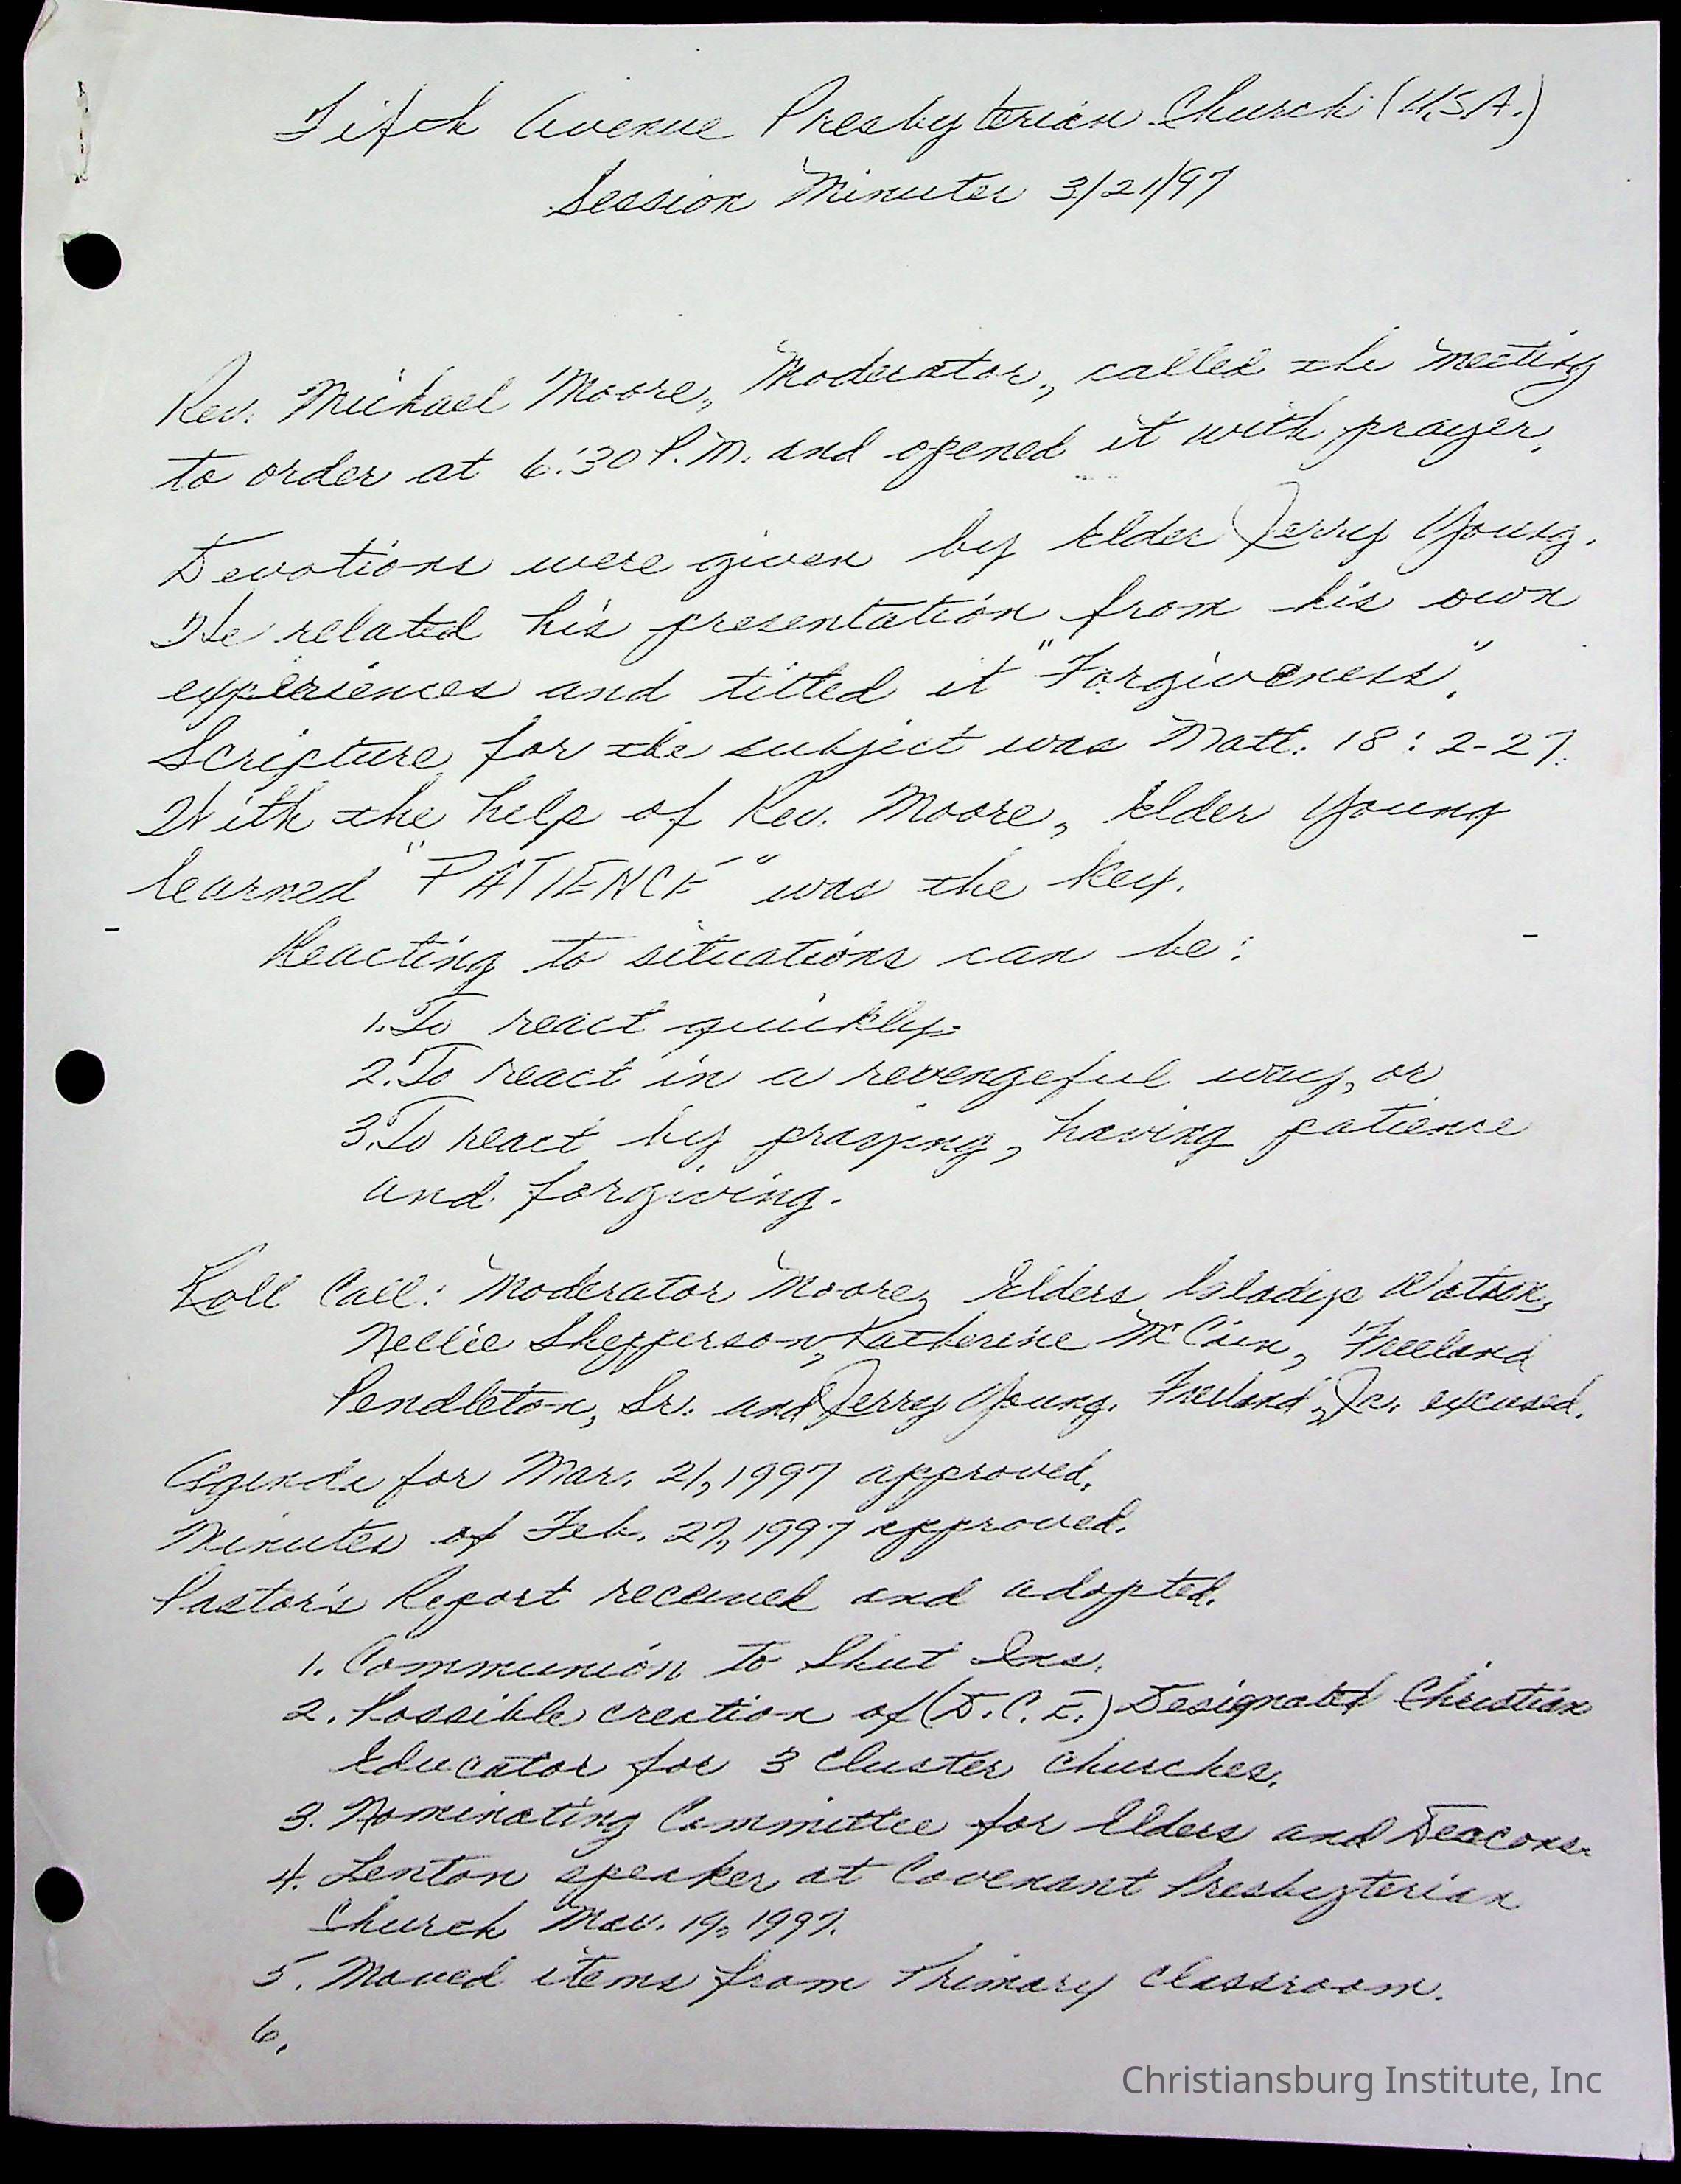 Fifth Avenue Presbyterian Church (U.S.A.)
Session Minutes 3/21/97
Rev. Michael Moore, Moderator, called the meeting
to order at 6:30 P.M. and opened it with prayer.
Devotions were given by Elder Jerry Young.
He related his presentation from his own
experiences and titled it "Forgiveness".
Scripture for the subject was Matt. 18:2-27.
With the help of Rev. Moore, Elder Young
learned "PATIENCE" was the key.
Reacting to situations can be:
1. To react quickly.
2. To react in a revengeful way, or
3. To react by praying, having patience
and forgiving.
Roll Call: Moderator Moore, Elders Gladys Watson,
Nellie Shepperson, Katherine McCain, Freeland
Pendleton, Sr. and Jerry Young. Freeland, Jr. excused.
Agenda for Mar. 21, 1997 approved.
Minutes of Feb. 27, 1997 approved.
Pastor's Report received and adopted.
1. Communion to Shut Ins.
2. Possible creation of (D.C.E.) Designated Christian
Educator for 3 Cluster Churches.
3. Nominating Committee for Elders and Deacons.
4. Lenton speaker at Covenant Presbyterian
Church Mar. 19, 1997.
5. Moved items from Primary classroom.
6.
Christiansburg Institute, Inc